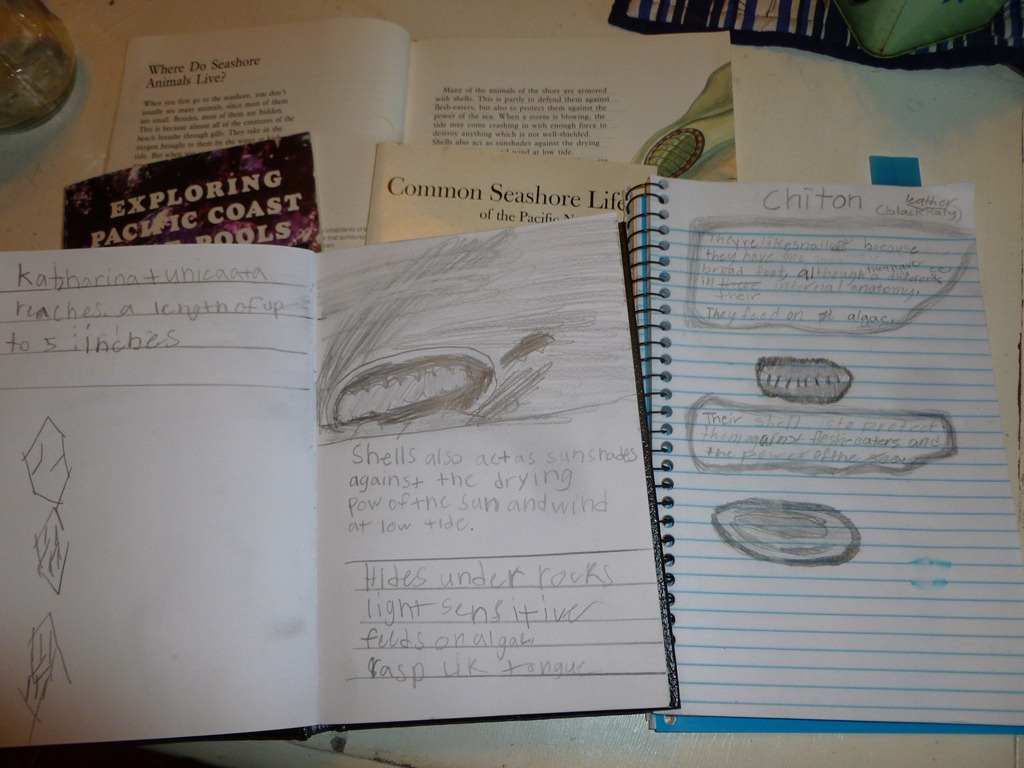 Where Do Seashore
Animals Live?
When you first go to the seashore, you don't
usually see many animals, since most of them
are small. Besides, most of them are hidden.
This is because almost all of the creatures of the
beach breathe through gills. They take in the
oxygen brought to them by the
tide. But when
Many of the animals of the shore are armored
with shells. This is partly to defend them against
flesh-eaters, but also to protect them against the
power of the sea. When a storm is blowing, the
tide may come crashing in with enough force to
destroy anything which is not well-shielded.
Shells also act as sunshades against the drying
wind at low tide.
EXPLORING
PACIFIC COAST
POOLS
Common Seashore Life
of the Pacific
Katharina tunicata
reaches a length of up
to 5 iinches
Shells also act as sunshades
against the drying
pow of the sun and wind
at low tide.
Hides under rocks
light sensitive
feeds on algae
rasp lik tongue
Chiton
leather
(black katy)
They're like snails because
they have one
broad foot, although
in internal anatomy.
their
They feed on algae.
Their shell protect
them against flesh-eaters and
the power of the sea